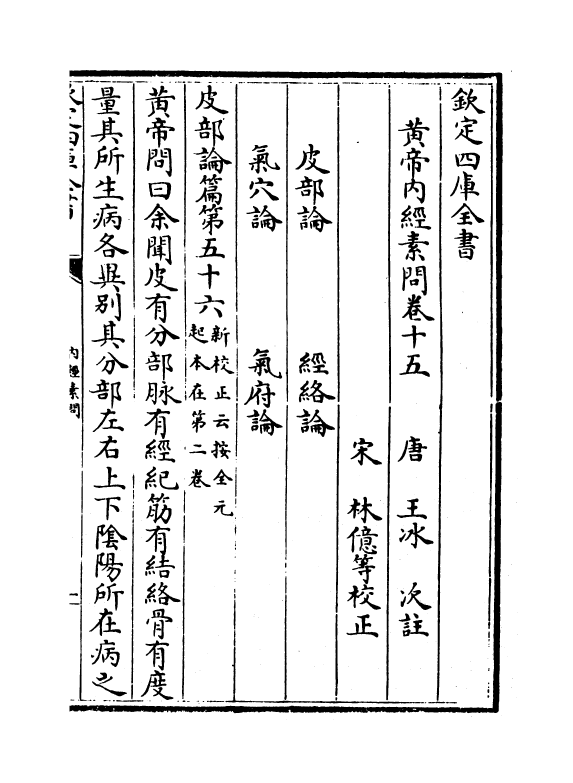 欽定四庫全書
黄帝内經素問卷十五　唐　王冰　次註
宋　林億等校正
皮部論　經絡論
氣穴論　氣府論
皮部論篇第五十六新校正云按全元起本在第二卷
黄帝問曰余聞皮有分部脉有經紀筋有結絡骨有度
量其所生病各異别其分部左右上下陰陽所在病之
内經素問